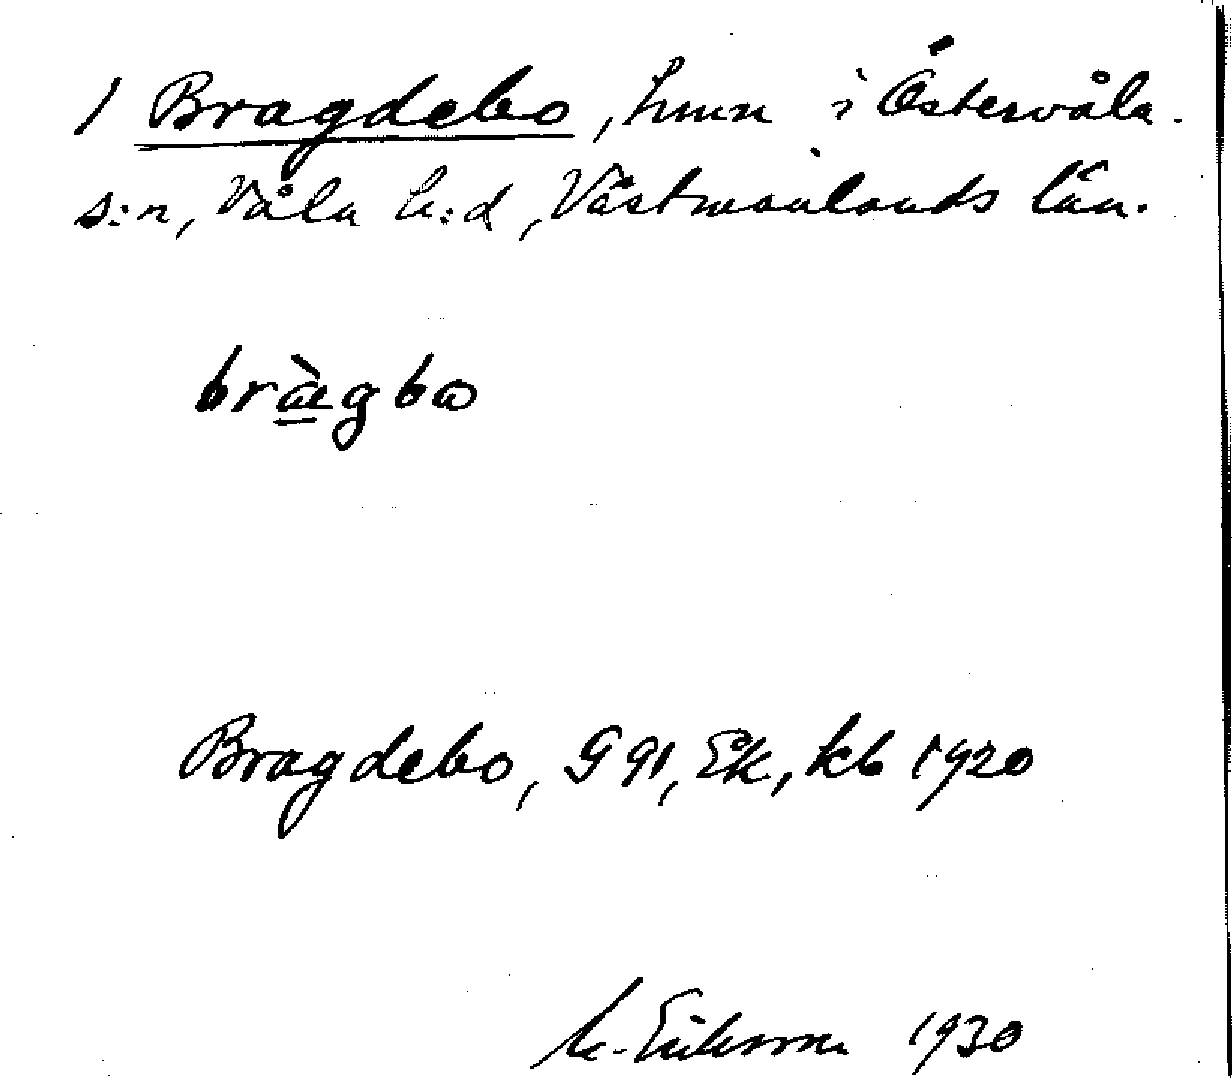 1 Bragdebo, hmn i Östervåla
s:n, Våla h:d, Västmanlands län.
bræ̀gbω
Bragdebo, G 91, Ek, kb 1920
M. Eriksson 1930